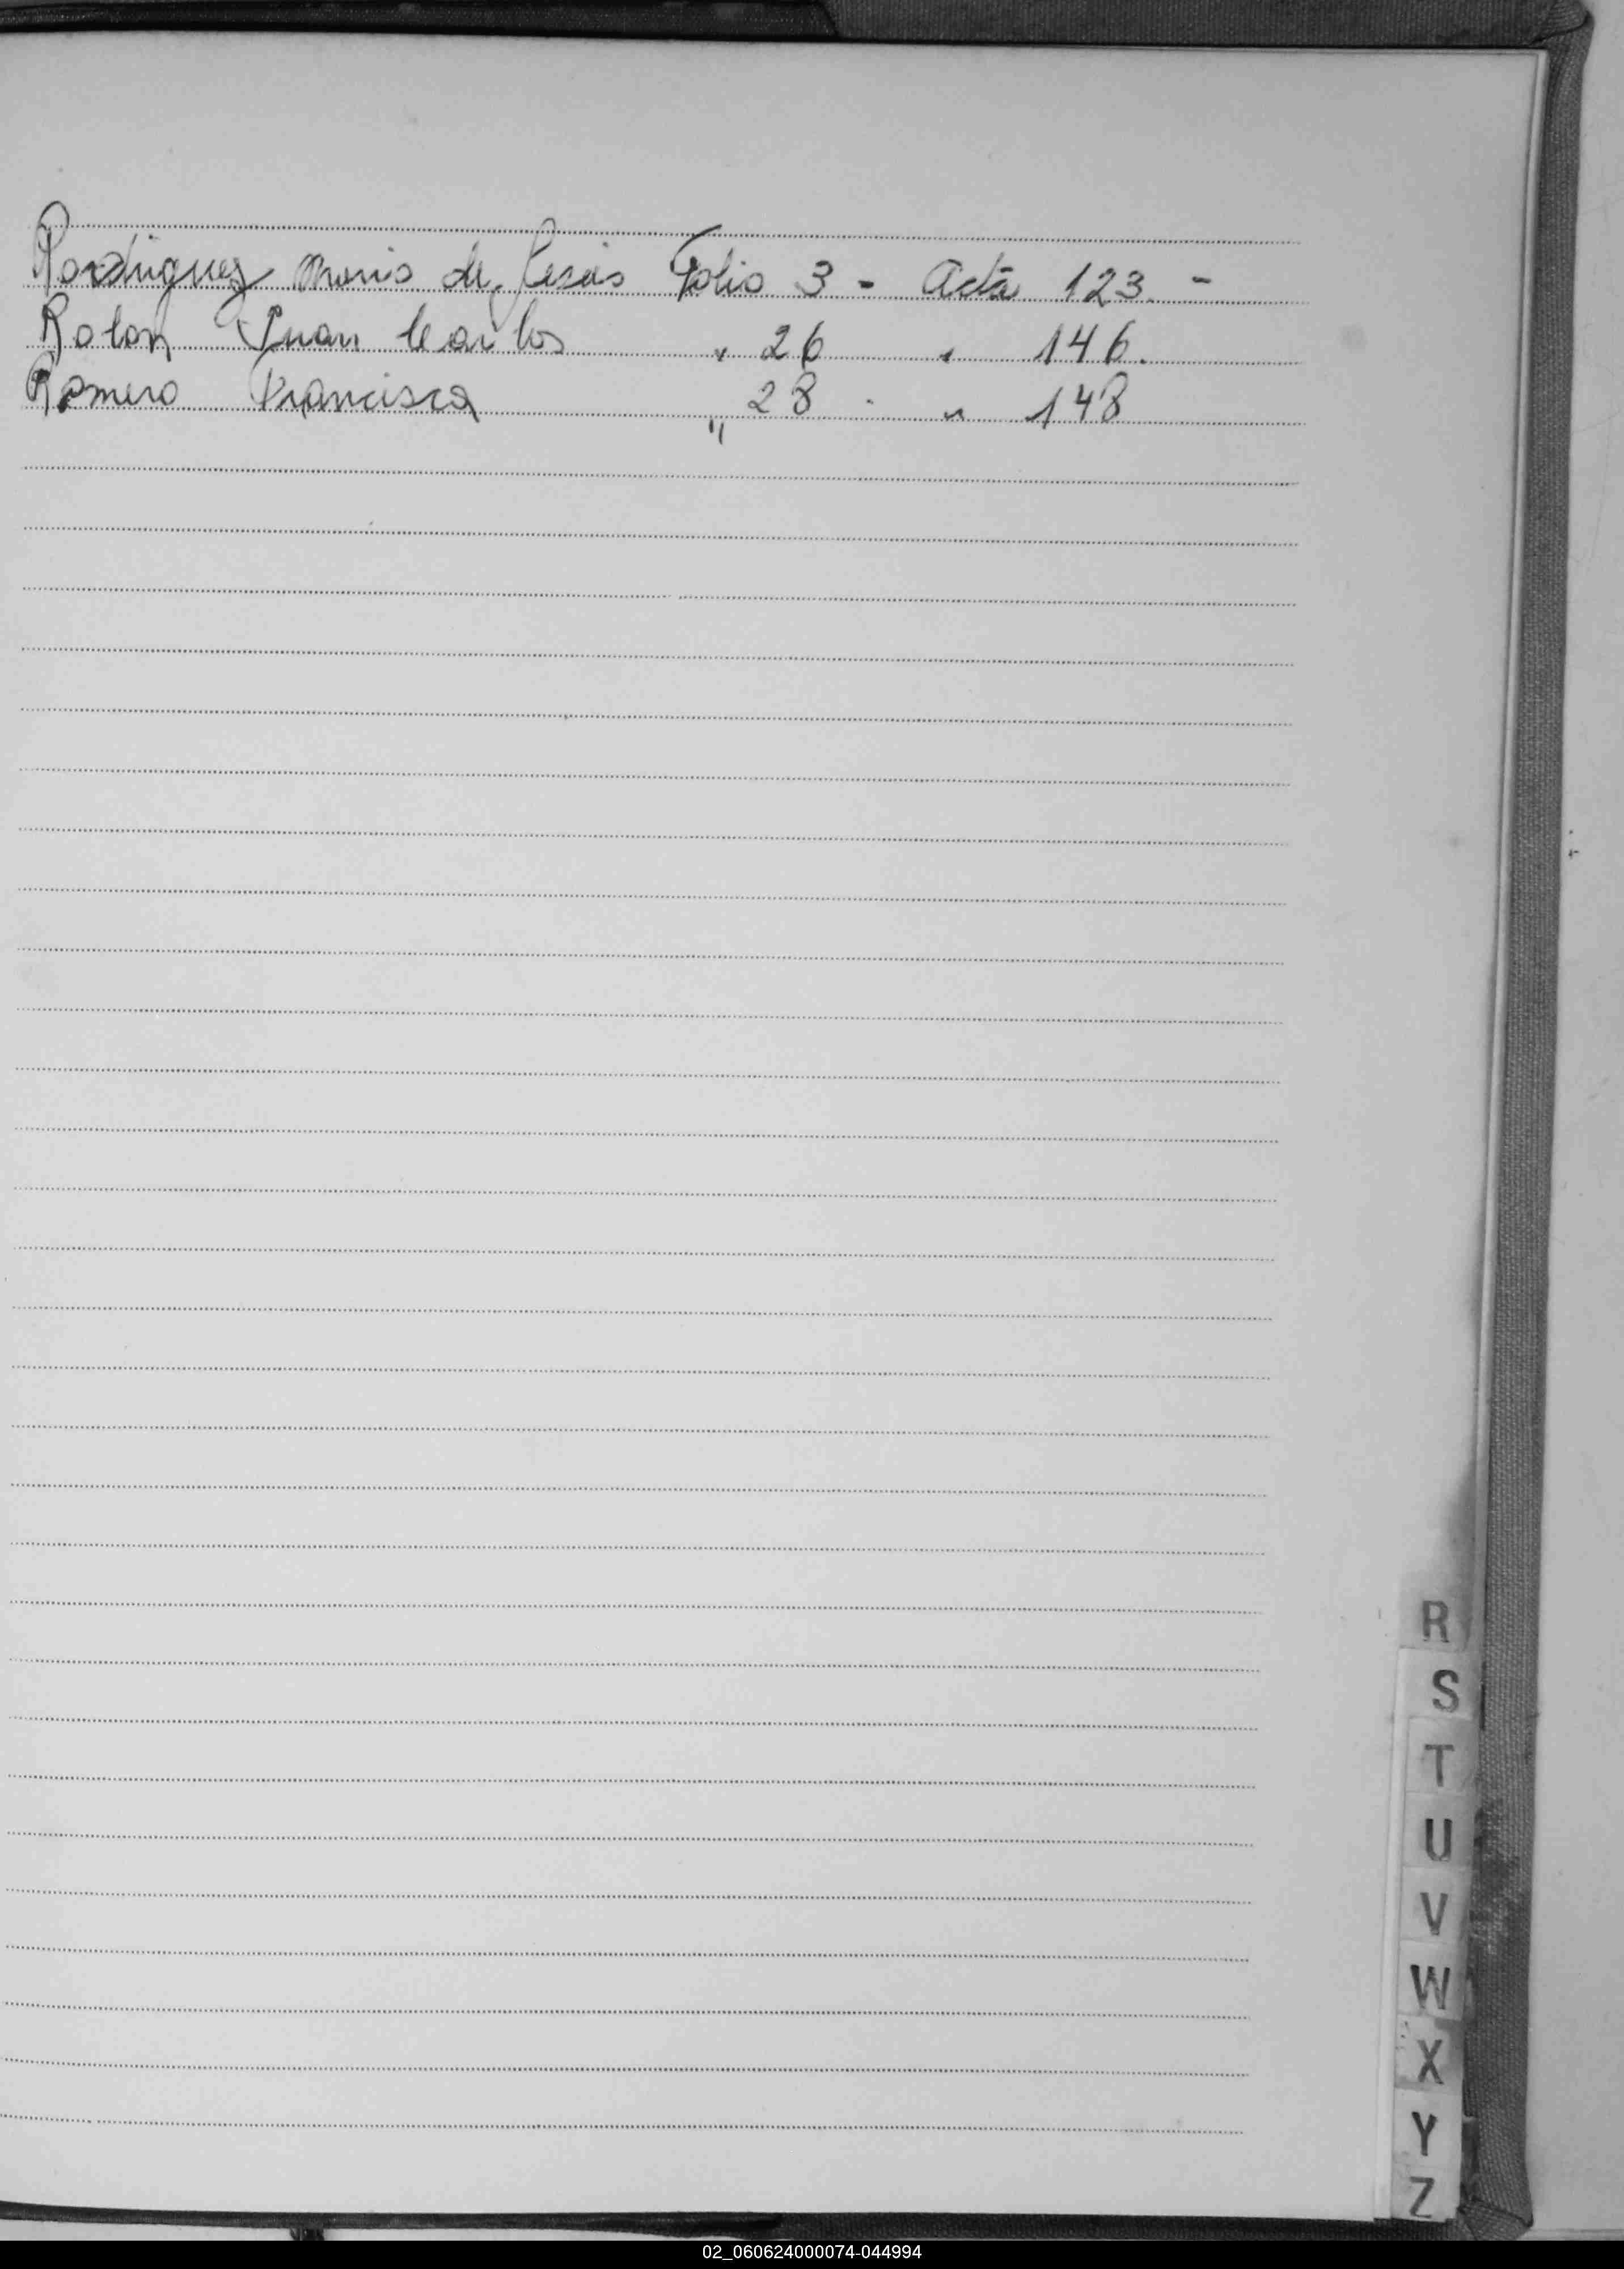 Rodriguez Maria de Jesús Folio 3 - Acta 123. -
Rolon Juan Carlos " 26 " 146.
Romero Francisca " 28 " 148
R
S
T
U
V
W
X
Y
Z
02_060624000074-044994